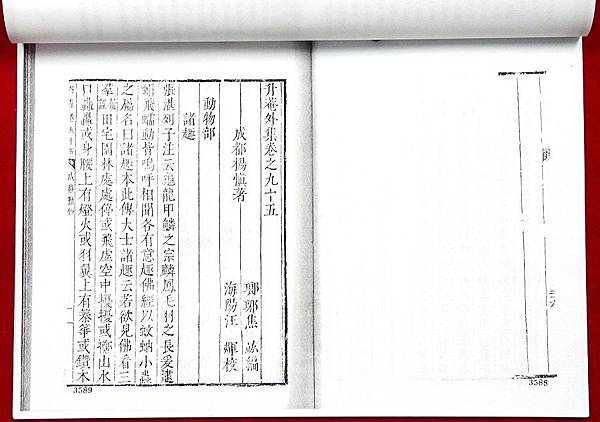 升菴外集卷之九十五
成都楊慎著
瑯琊焦竑編
海陽汪煇校
動物部
諸趣
張湛列子注云龜龍甲鱗之宗麟鳳毛羽之長爰逮
蠉飛蠕動皆鳴呼相聞各有意趣佛經以蚊蚋小蟲
之屬名曰諸趣本此傅大士諸趣云若欲見佛看三
羣田宅園林處處停或飛虛空中擾擾或擲山水
口轟轟或身腰上有燈火或羽翼上有蓁華或鑽木
3589
3588